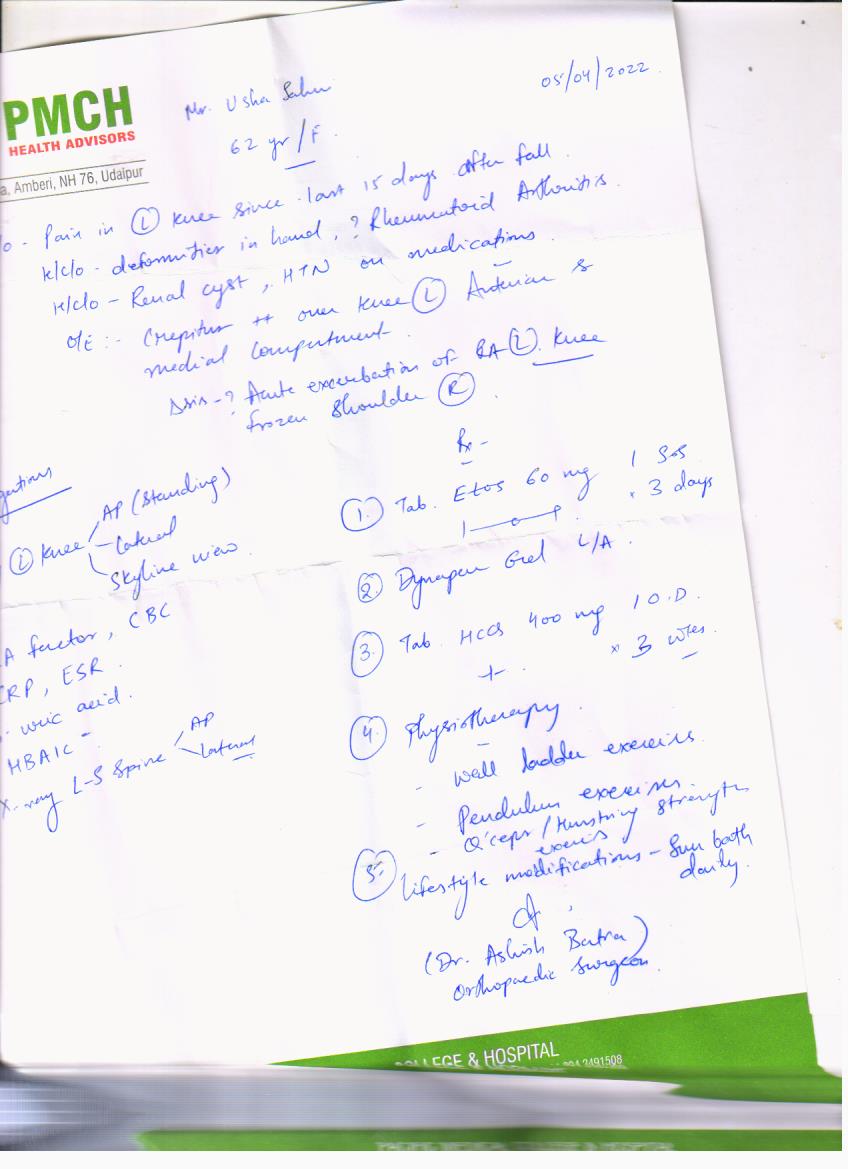 PMCH
HEALTH ADVISORS
a, Amberi, NH 76, Udaipur
Mr. Usha Sahu
62 yr/F.
05/04/2022.
/o - Pain in (L) knee since last 15 days after fall.
K/C/O - deformities in hand, ? Rheumatoid Arthritis.
K/C/O - Renal cyst, HTN on medications.
O/E :- Crepitus ++ over knee (L) Anterior &
medial compartment.
Δsis - ? Acute excerbation of RA (L) knee
frozen shoulder (R).
gations
(L) knee
AP (Standing)
Lateral
Skyline view.
A factor, CBC
CRP, ESR.
uric acid.
HBA1C -
X-ray L-S Spine
AP
Lateral
Rx -
1. Tab. Etos 60 mg 1 SOS
x 3 days
2. Dynapar Gel L/A.
3. Tab. HCQS 400 mg 1 O.D.
x 3 wks.
4. Physiotherapy.
- Wall ladder exercises.
- Pendulum exercises
- Q'ceps/Hamstring strength
exercis
5. Lifestyle modifications - Sun bath
daily.
(Dr. Ashish Batra)
Orthopaedic Surgeon.
COLLEGE & HOSPITAL
2491508